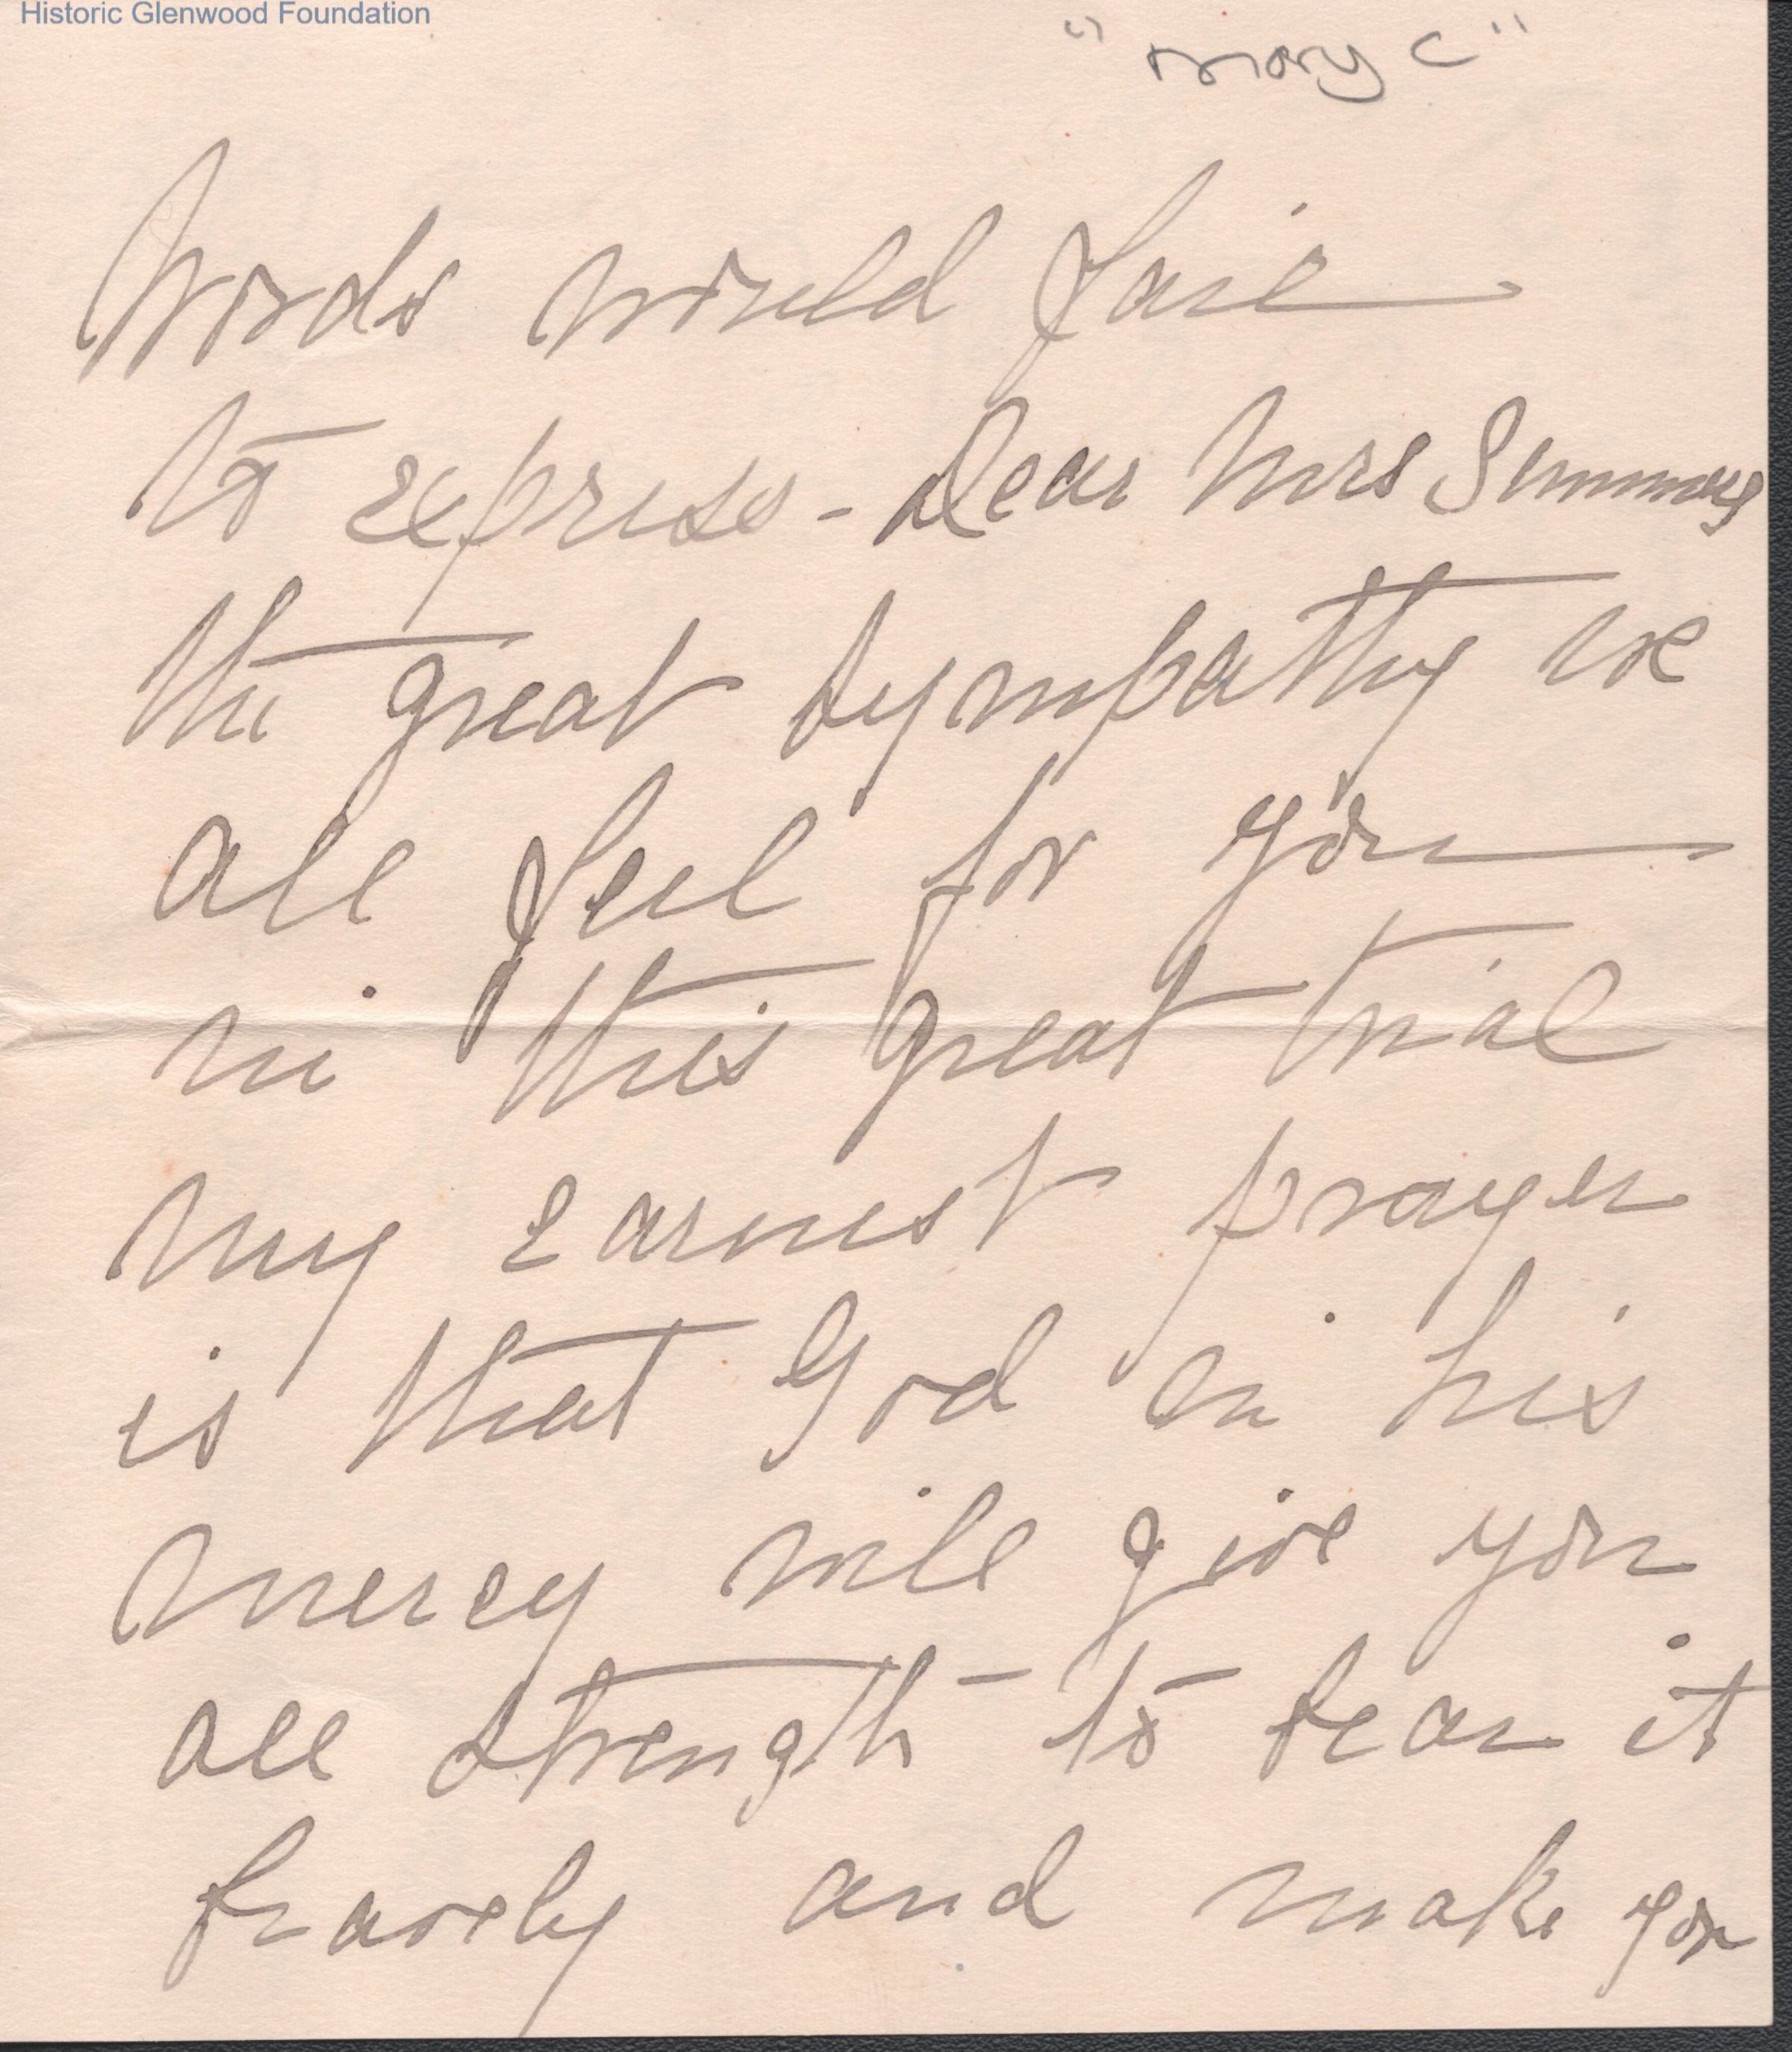 Historic Glenwood Foundation
"Mary C"
Words would fail
to express - dear Mrs Summers
the great sympathy we
all feel for you
in this great trial
my earnest prayer
is that God in his
mercy will give you
all strength - to bear it
bravely and make you